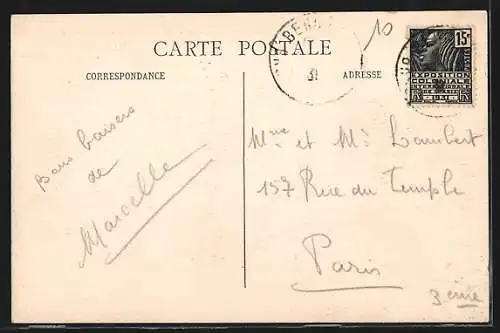 CARTE POSTALE
CORRESPONDANCE
ADRESSE
31
10
15c
POSTES
EXPOSITION
COLONIALE
INTERNATIONALE
DE PARIS
1931
Bons baisers
de
Marcelle
Mme et Mr Lambert
157 Rue du Temple
Paris
3ème